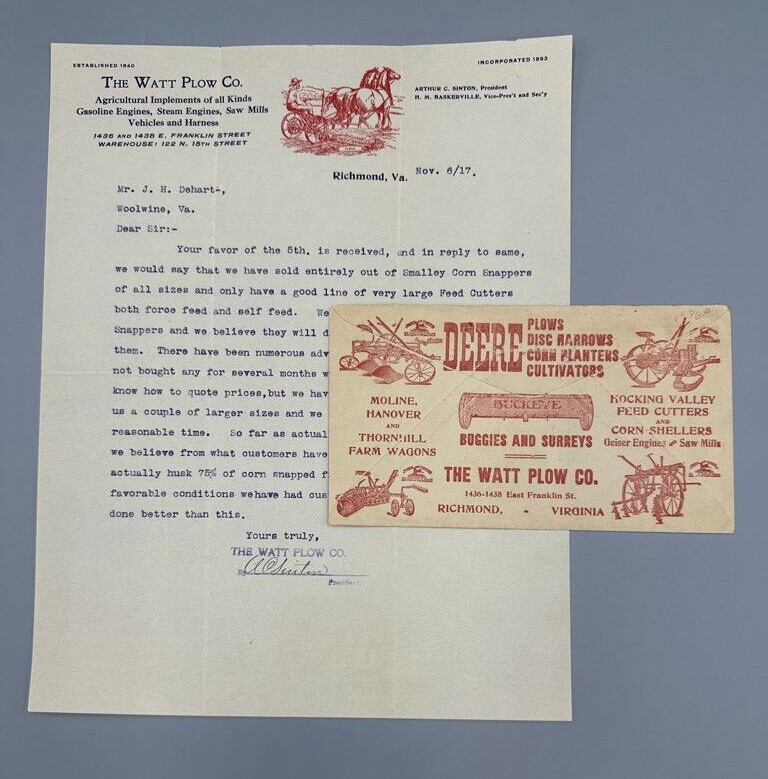 ESTABLISHED 1840
INCORPORATED 1893
THE WATT PLOW CO.
Agricultural Implements of all Kinds
Gasoline Engines, Steam Engines, Saw Mills
Vehicles and Harness
1436 AND 1438 E. FRANKLIN STREET
WAREHOUSE: 122 N. 15TH STREET
ARTHUR C. SINTON, President
H. M. BASKERVILL, Vice-Pres't and Sec'y
Richmond, Va. Nov. 6/17.
Mr. J. H. Dehart-,
Woolwine, Va.
Dear Sir:-
Your favor of the 5th. is received, and in reply to same,
we would say that we have sold entirely out of Smalley Corn Snappers
of all sizes and only have a good line of very large Feed Cutters
both force feed and self feed. We
Snappers and we believe they will d
them. There have been numerous adv
not bought any for several months w
know how to quote prices,but we hav
us a couple of larger sizes and we
reasonable time. So far as actual
we believe from what customers have
actually husk 75% of corn snapped f
favorable conditions wehave had cus
done better than this.
Yours truly,
THE WATT PLOW CO.
By A C Sinton
President.
DEERE
PLOWS
DISC HARROWS
CORN PLANTERS
CULTIVATORS
MOLINE,
HANOVER
AND
THORNHILL
FARM WAGONS
BUCKEYE
BUGGIES AND SURREYS
HOCKING VALLEY
FEED CUTTERS
AND
CORN SHELLERS
Geiser Engines and Saw Mills
THE WATT PLOW CO.
1436-1438 East Franklin St.
RICHMOND, - VIRGINIA